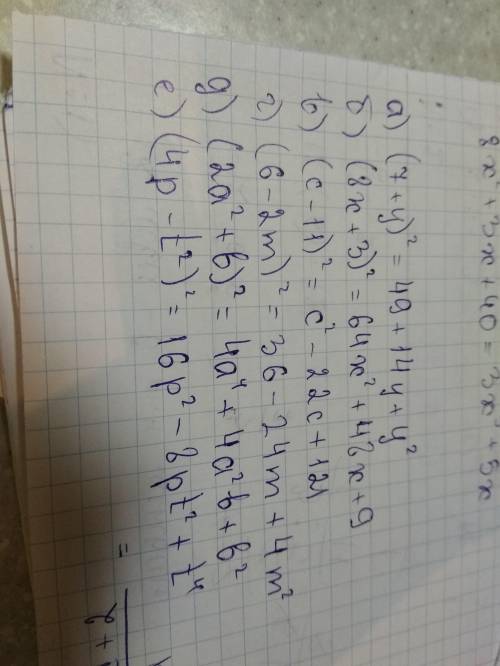 8x² + 3x + 40 = 3x² + 5x
а) (7+y)² = 49 + 14y + y²
б) (8x + 3)² = 64x² + 48x + 9
в) (c - 11)² = c² - 22c + 121
г) (6 - 2m)² = 36 - 24m + 4m²
д) (2a² + b)² = 4a⁴ + 4a²b + b²
е) (4p - t²)² = 16p² - 8pt² + t⁴
=